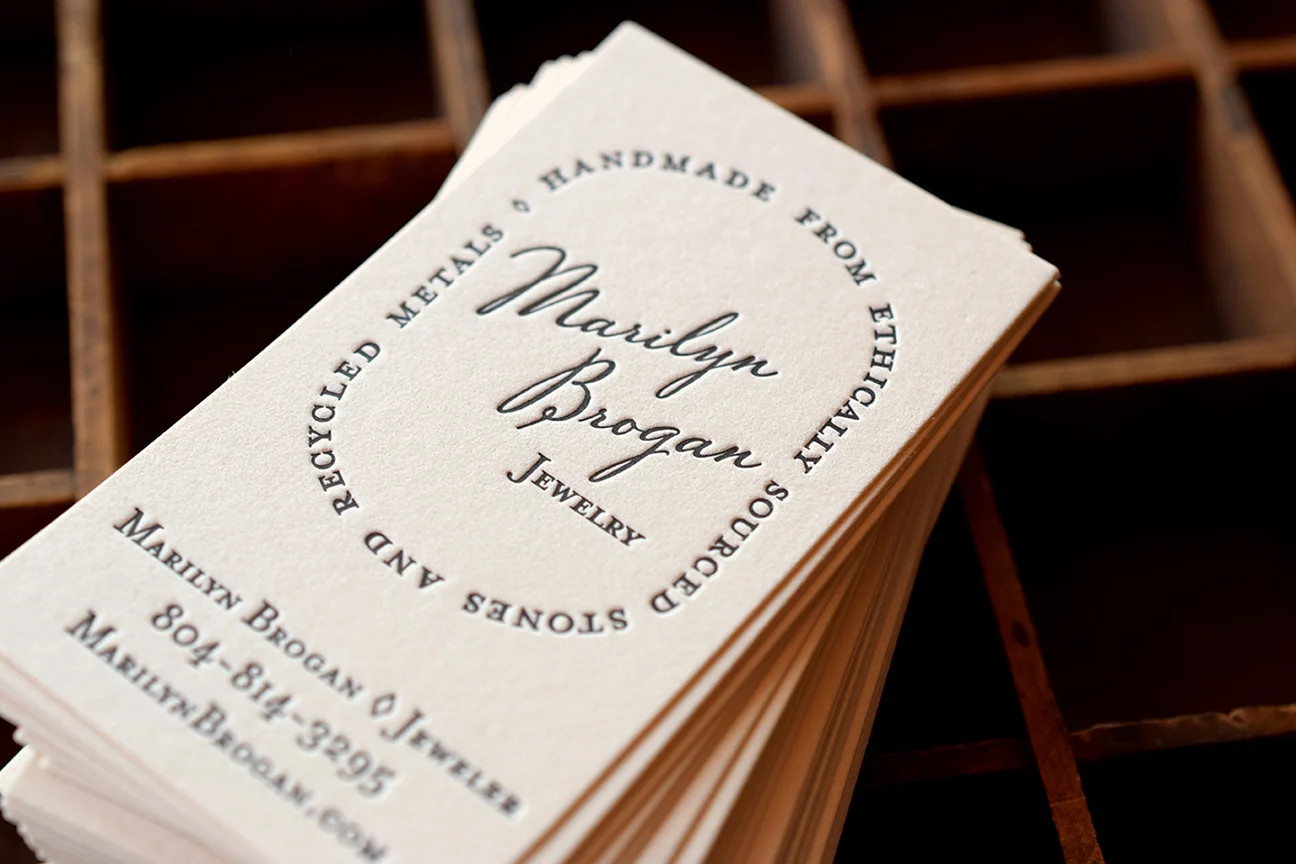 HANDMADE FROM ETHICALLY SOURCED STONES AND RECYCLED METALS ◊
Marilyn
Brogan
Jewelry
Marilyn Brogan ◊ Jeweler
804-814-3295
MarilynBrogan.com